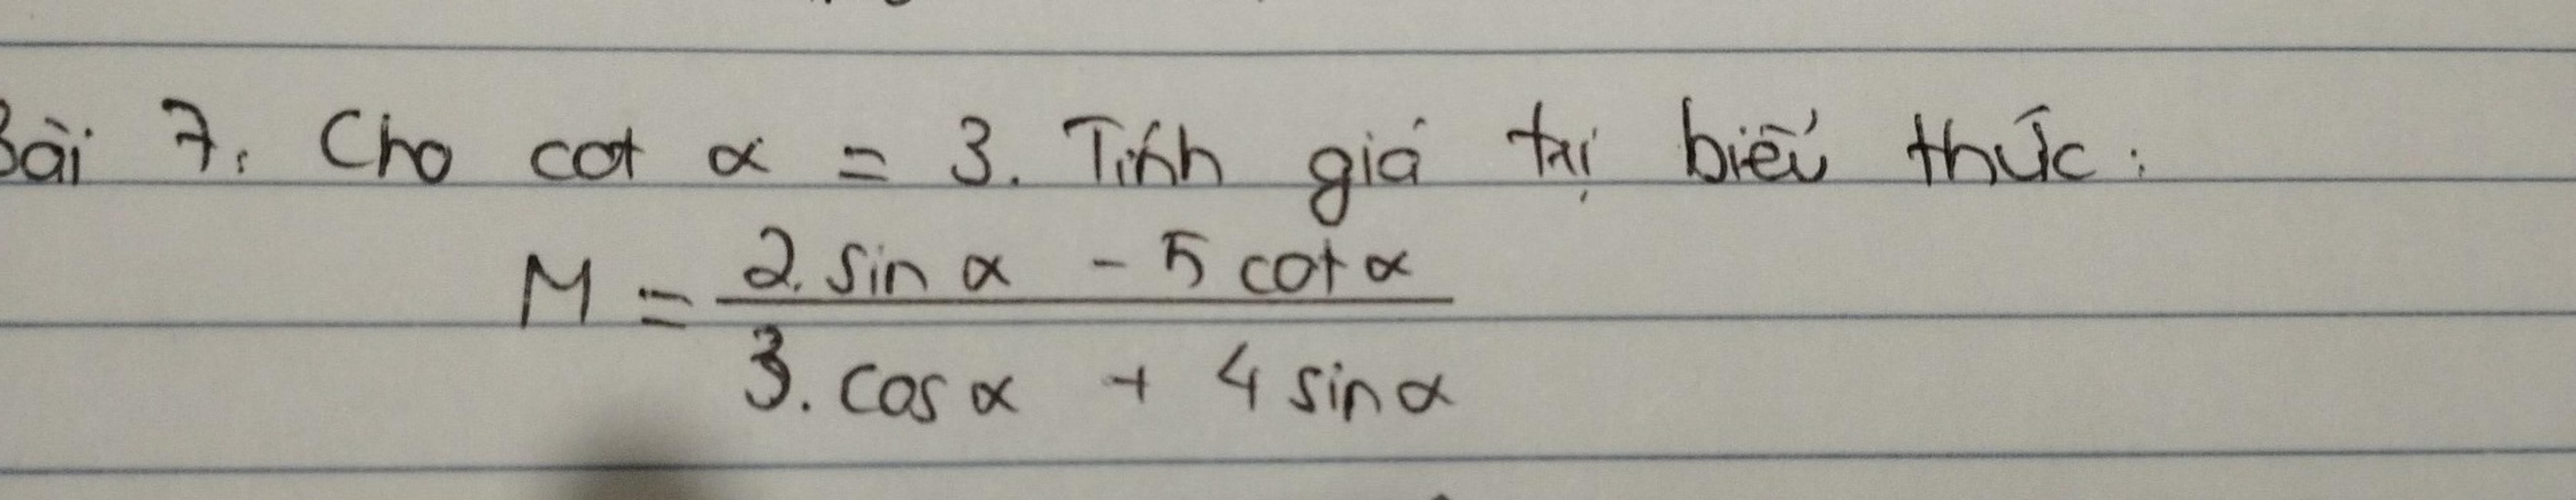 Bài 7. Cho cot α = 3. Tính giá trị biểu thức:
M = \frac{2. sin α - 5 cot α}{3. cos α + 4 sin α}